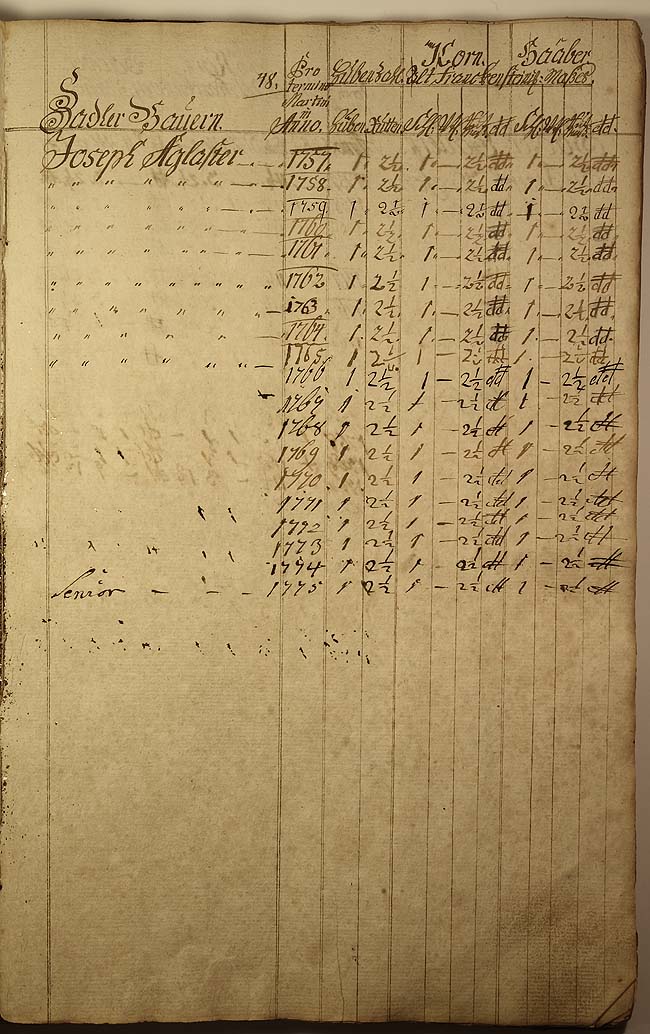 48. Pro Korn. Haaber
termino Hubenzahl. Alt Franckensteinis: Maßes.
Martini
Sadler Bauern. Anno. Huben Ruten dd dd.
Joseph Aglaster 1757. 1. 2½. 1. — 2½ dd. 1. — 2½ dd.
" " " " " " — 1758. 1. 2½. 1. — 2½ dd. 1. — 2½ dd.
" " " " " " — 1759 1 2½ 1 — 2½ dd 1 — 2½ dd
" " " " " " — 1760 1. 2½ 1. — 2½ dd 1. — 2½ dd
" " " " " " " 1761. 1. 2½. 1. — 2½ dd 1. — 2½ dd
" " " " " " " 1762 1. 2½ 1. — 2½ dd 1. — 2½ dd
" " " " " " — 1763 1. 2½. 1. — 2½ dd 1. — 2½ dd
" " " " " " — 1764. 1. 2½. 1. — 2½ dd 1. — 2½ dd.
" " " " " " — 1765. 1 2½ 1 — 2½ dd 1. — 2½ dd
1766 1 2½ 1 — 2½ dd 1 — 2½ dd
1767 1 2½ 1 — 2½ dd 1 — 2½ dd
1768 1 2½ 1 — 2½ dd 1 — 2½ dd
1769 1 2½ 1 — 2½ dd 1 — 2½ dd
1770 1 2½ 1 — 2½ dd 1 — 2½ dd
1771 1 2½ 1 — 2½ dd 1 — 2½ dd
1772 1 2½ 1 — 2½ dd 1 — 2½ dd
1773 1 2½ 1 — 2½ dd 1 — 2½ dd
1774 1 2½ 1 — 2½ dd 1 — 2½ dd
Senior — — — 1775 1 2½ 1 — 2½ dd 1 — 2½ dd